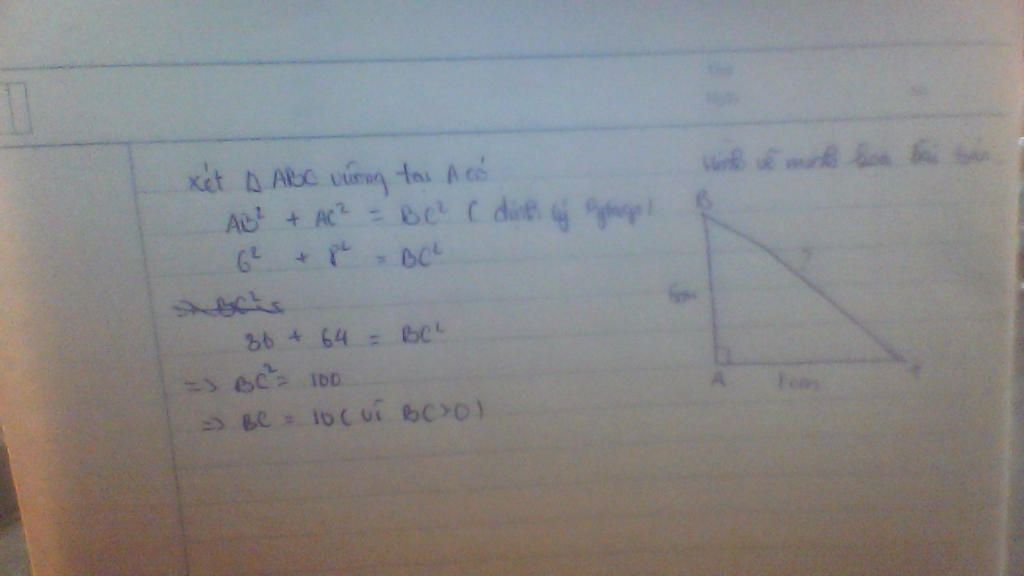 xét Δ ABC vuông tại A có
AB² + AC² = BC² ( định lý Pytago)
6² + 8² = BC²
=> BC² =
36 + 64 = BC²
=> BC² = 100
=> BC = 10 ( vì BC>0)
Hình vẽ minh họa bài toán
B
?
6cm
A
8cm
C